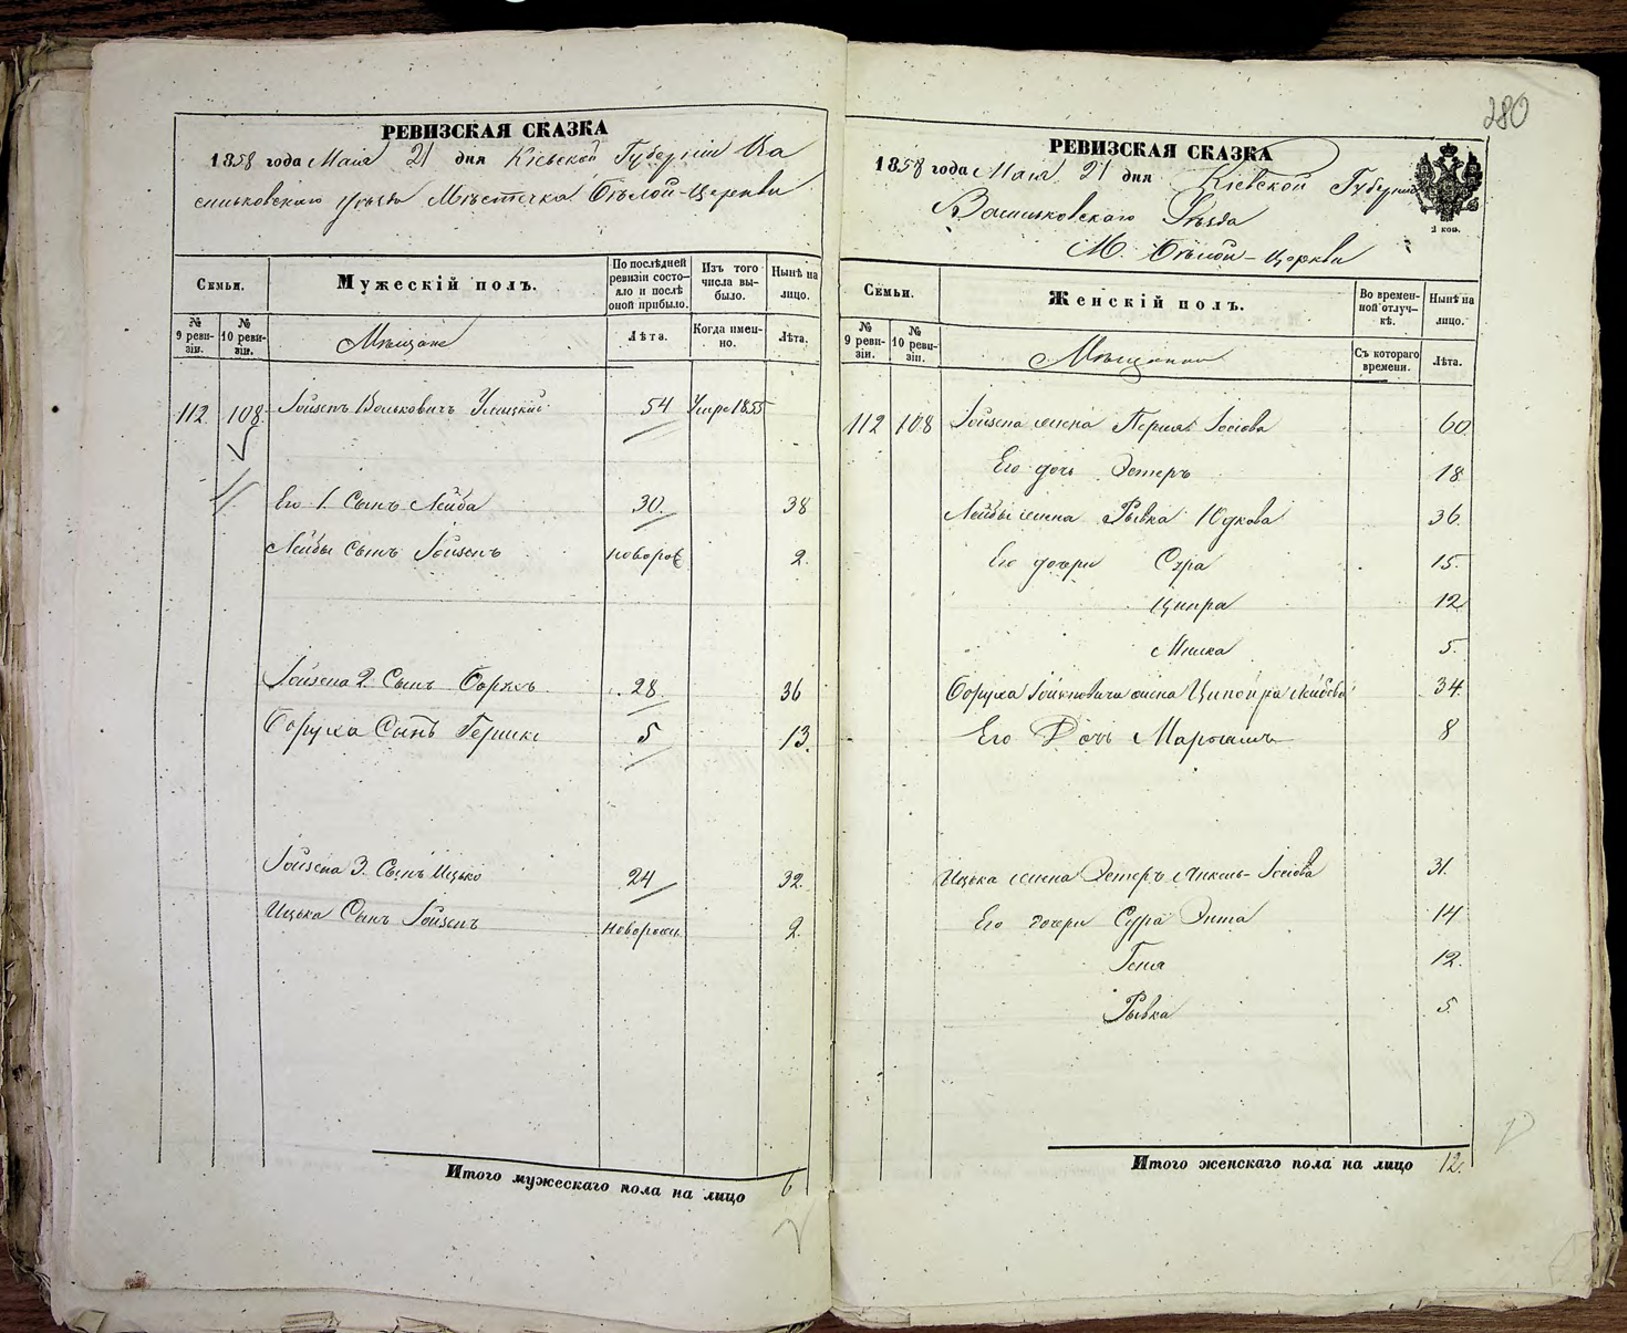 280
РЕВИЗСКАЯ СКАЗКА
1858 года Мая 21 дня Кіевской Губерніи Ва
сильковскаго уѣзда Мѣстечка Бѣлой-Церкви
Семьи.
Мужескій полъ.
По послѣдней ревизіи состояло и послѣ оной прибыло.
Изъ того числа выбыло.
Нынѣ на лицо.
№ 9 ревизіи.
№ 10 ревизіи.
Мѣщане
Лѣта.
Когда именно.
Лѣта.
112 108 Іойзепъ Вольковичъ 54 Умре 1855
Его 1. Сынъ Лейба 30. 38
Лейбы Сынъ Іойзепъ новорож 2.
Іойзепа 2. Сынъ Борухъ 28. 36
Боруха Сынъ Гершко 5 13.
Іойзепа 3. Сынъ Ицько 24 32.
Ицька Сынъ Іойзепъ Новорожд. 2.
Итого мужескаго пола на лицо 6
РЕВИЗСКАЯ СКАЗКА
1858 года Мая 21 дня Кіевской Губерніи
Васильковскаго Уѣзда
М. Бѣлой-Церкви
1 коп.
Семьи.
Женскій полъ.
Во временной отлучкѣ.
Нынѣ на лицо.
№ 9 ревизіи.
№ 10 ревизіи.
Мѣщанки
Съ котораго времени.
Лѣта.
112 108 Іойзепа жена Перля Іосіова 60
Его дочь Эстеръ 18
Лейбы жена Рывка Юдкова 36.
Его дочери Сура 15.
Ципра 12
5.
Боруха Іойзеповича жена Ципойра Лейбова 34.
Его Дочь 8
Ицька жена Эстеръ Іосіова 31.
Его дочери Сура Энта 14
Геня 12.
Рывка 5.
Итого женскаго пола на лицо 12.